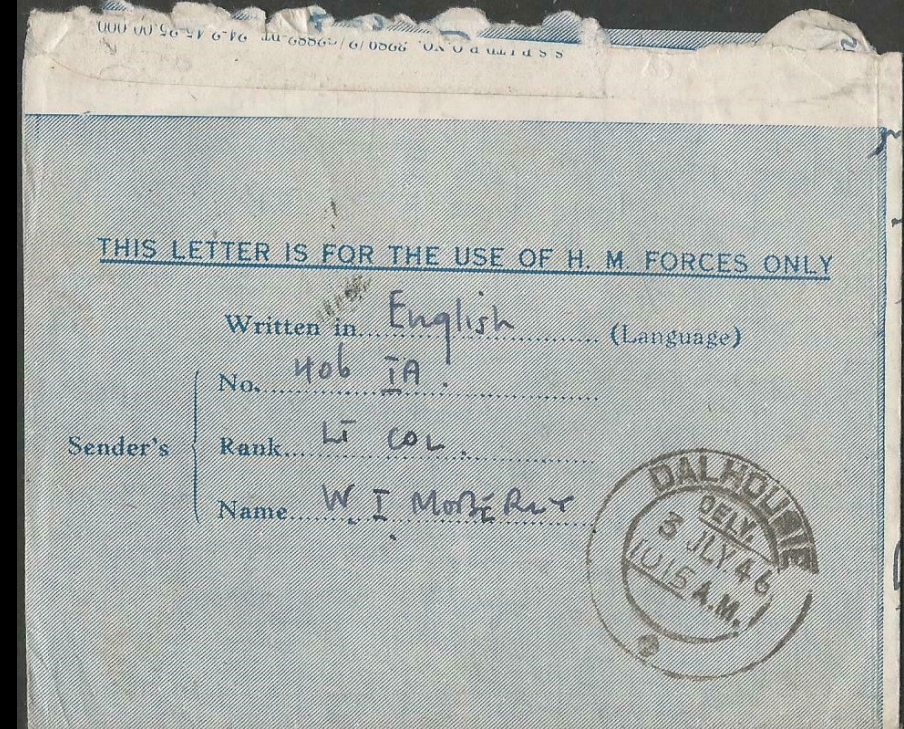 THIS LETTER IS FOR THE USE OF H. M. FORCES ONLY
Written in English (Language)
Sender's
No. 406 IA.
Rank LT COL.
Name W. I MOBERLY
DALHOUSIE
DELY.
3 JLY.46
1015 A.M.